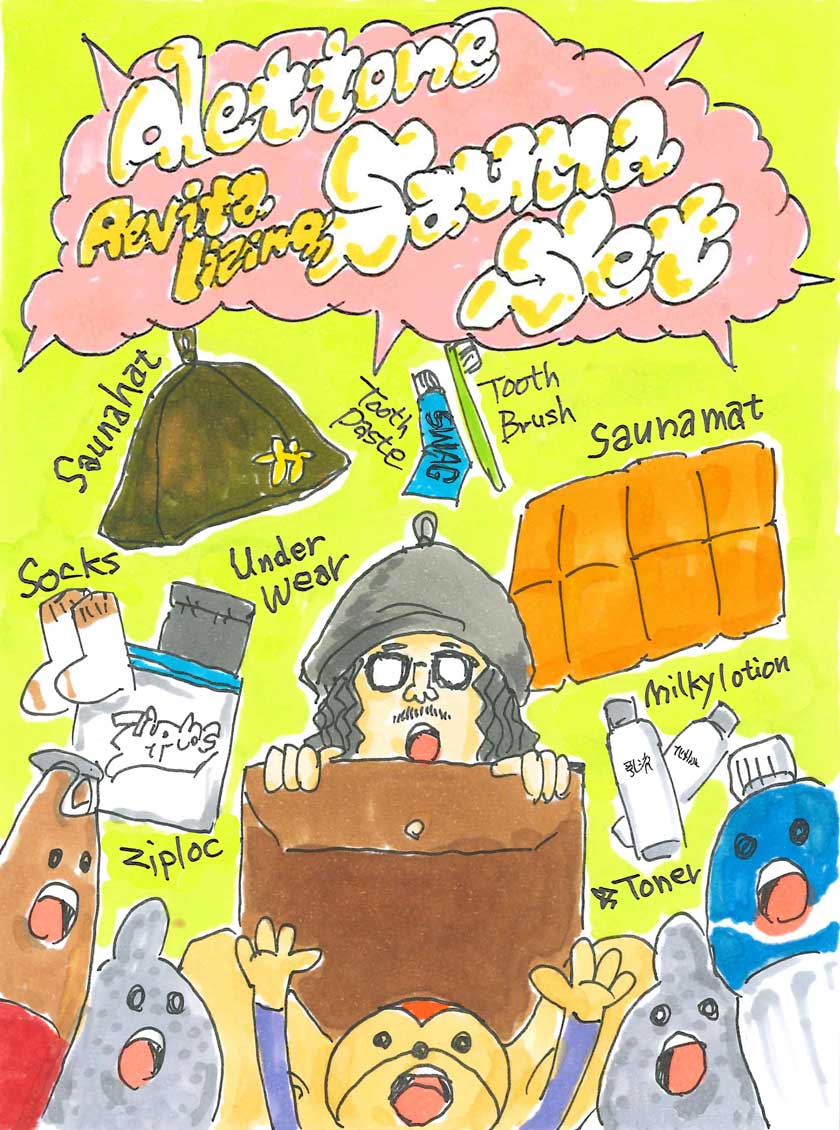 Alettone
Revita
lizing
Sauna
Set
Saunahat
Tooth
paste
SWAG
Tooth
Brush
Saunamat
Socks
Under
Wear
Ziploc
Milkylotion
乳液
Toner